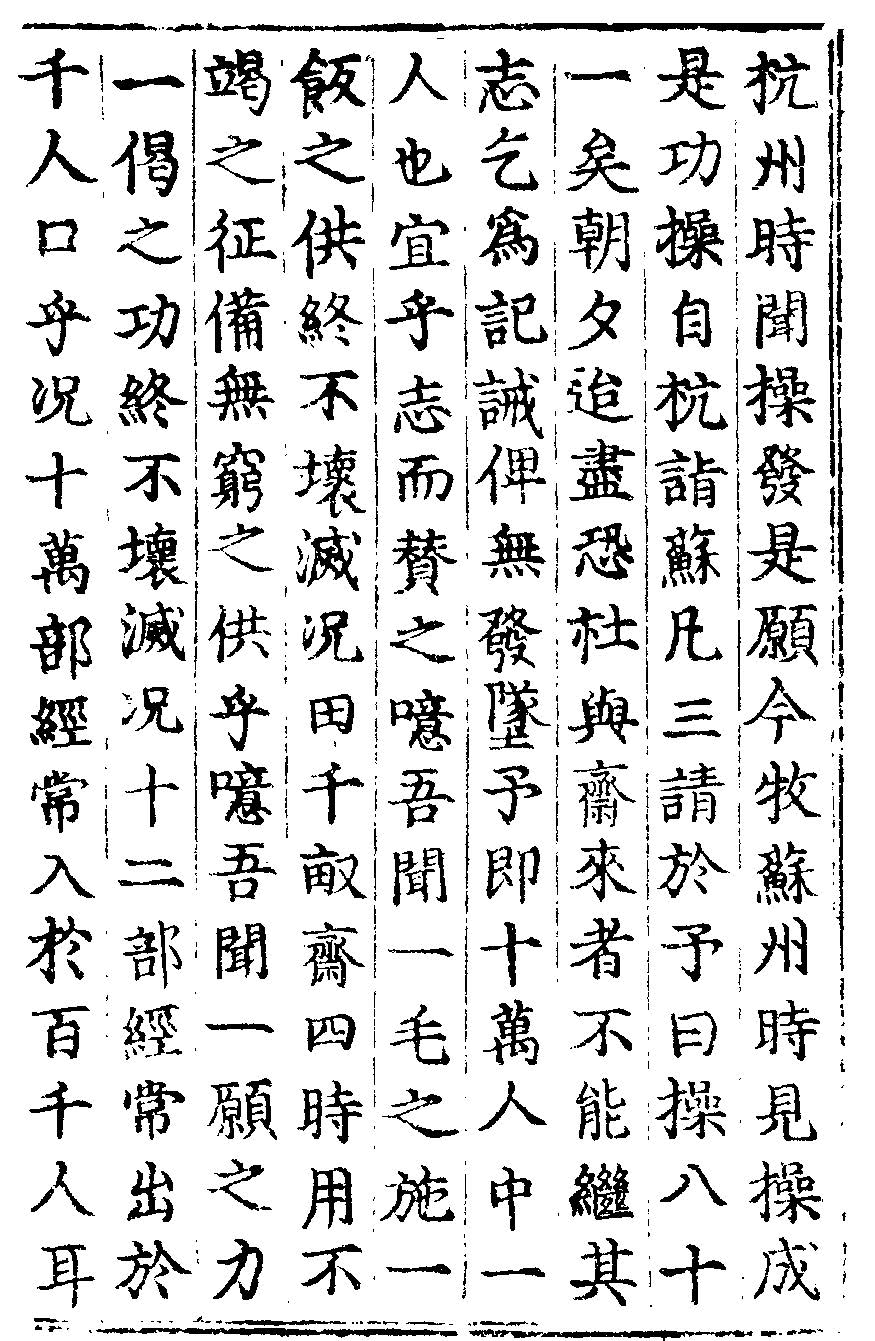 杭州時聞操發是願今牧蘇州時見操成
是功操自杭詣蘇凡三請於予曰操八十
一矣朝夕迨盡恐杜與齋來者不能繼其
志乞爲記誡俾無發墜予即十萬人中一
人也宜乎志而賛之噫吾聞一毛之施一
飯之供終不壞滅况田千畝齋四時用不
竭之征備無窮之供乎噫吾聞一願之力
一偈之功終不壞滅况十二部經常出於
千人口乎况十萬部經常入於百千人耳